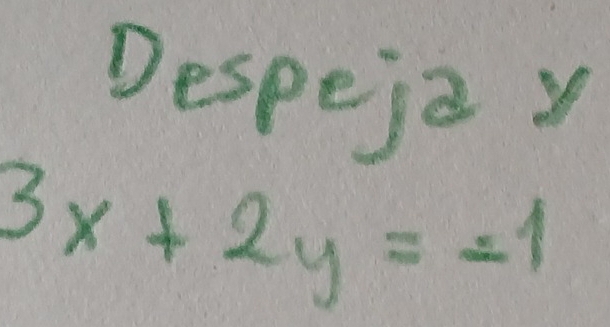 Despeja y
3x + 2y = -1